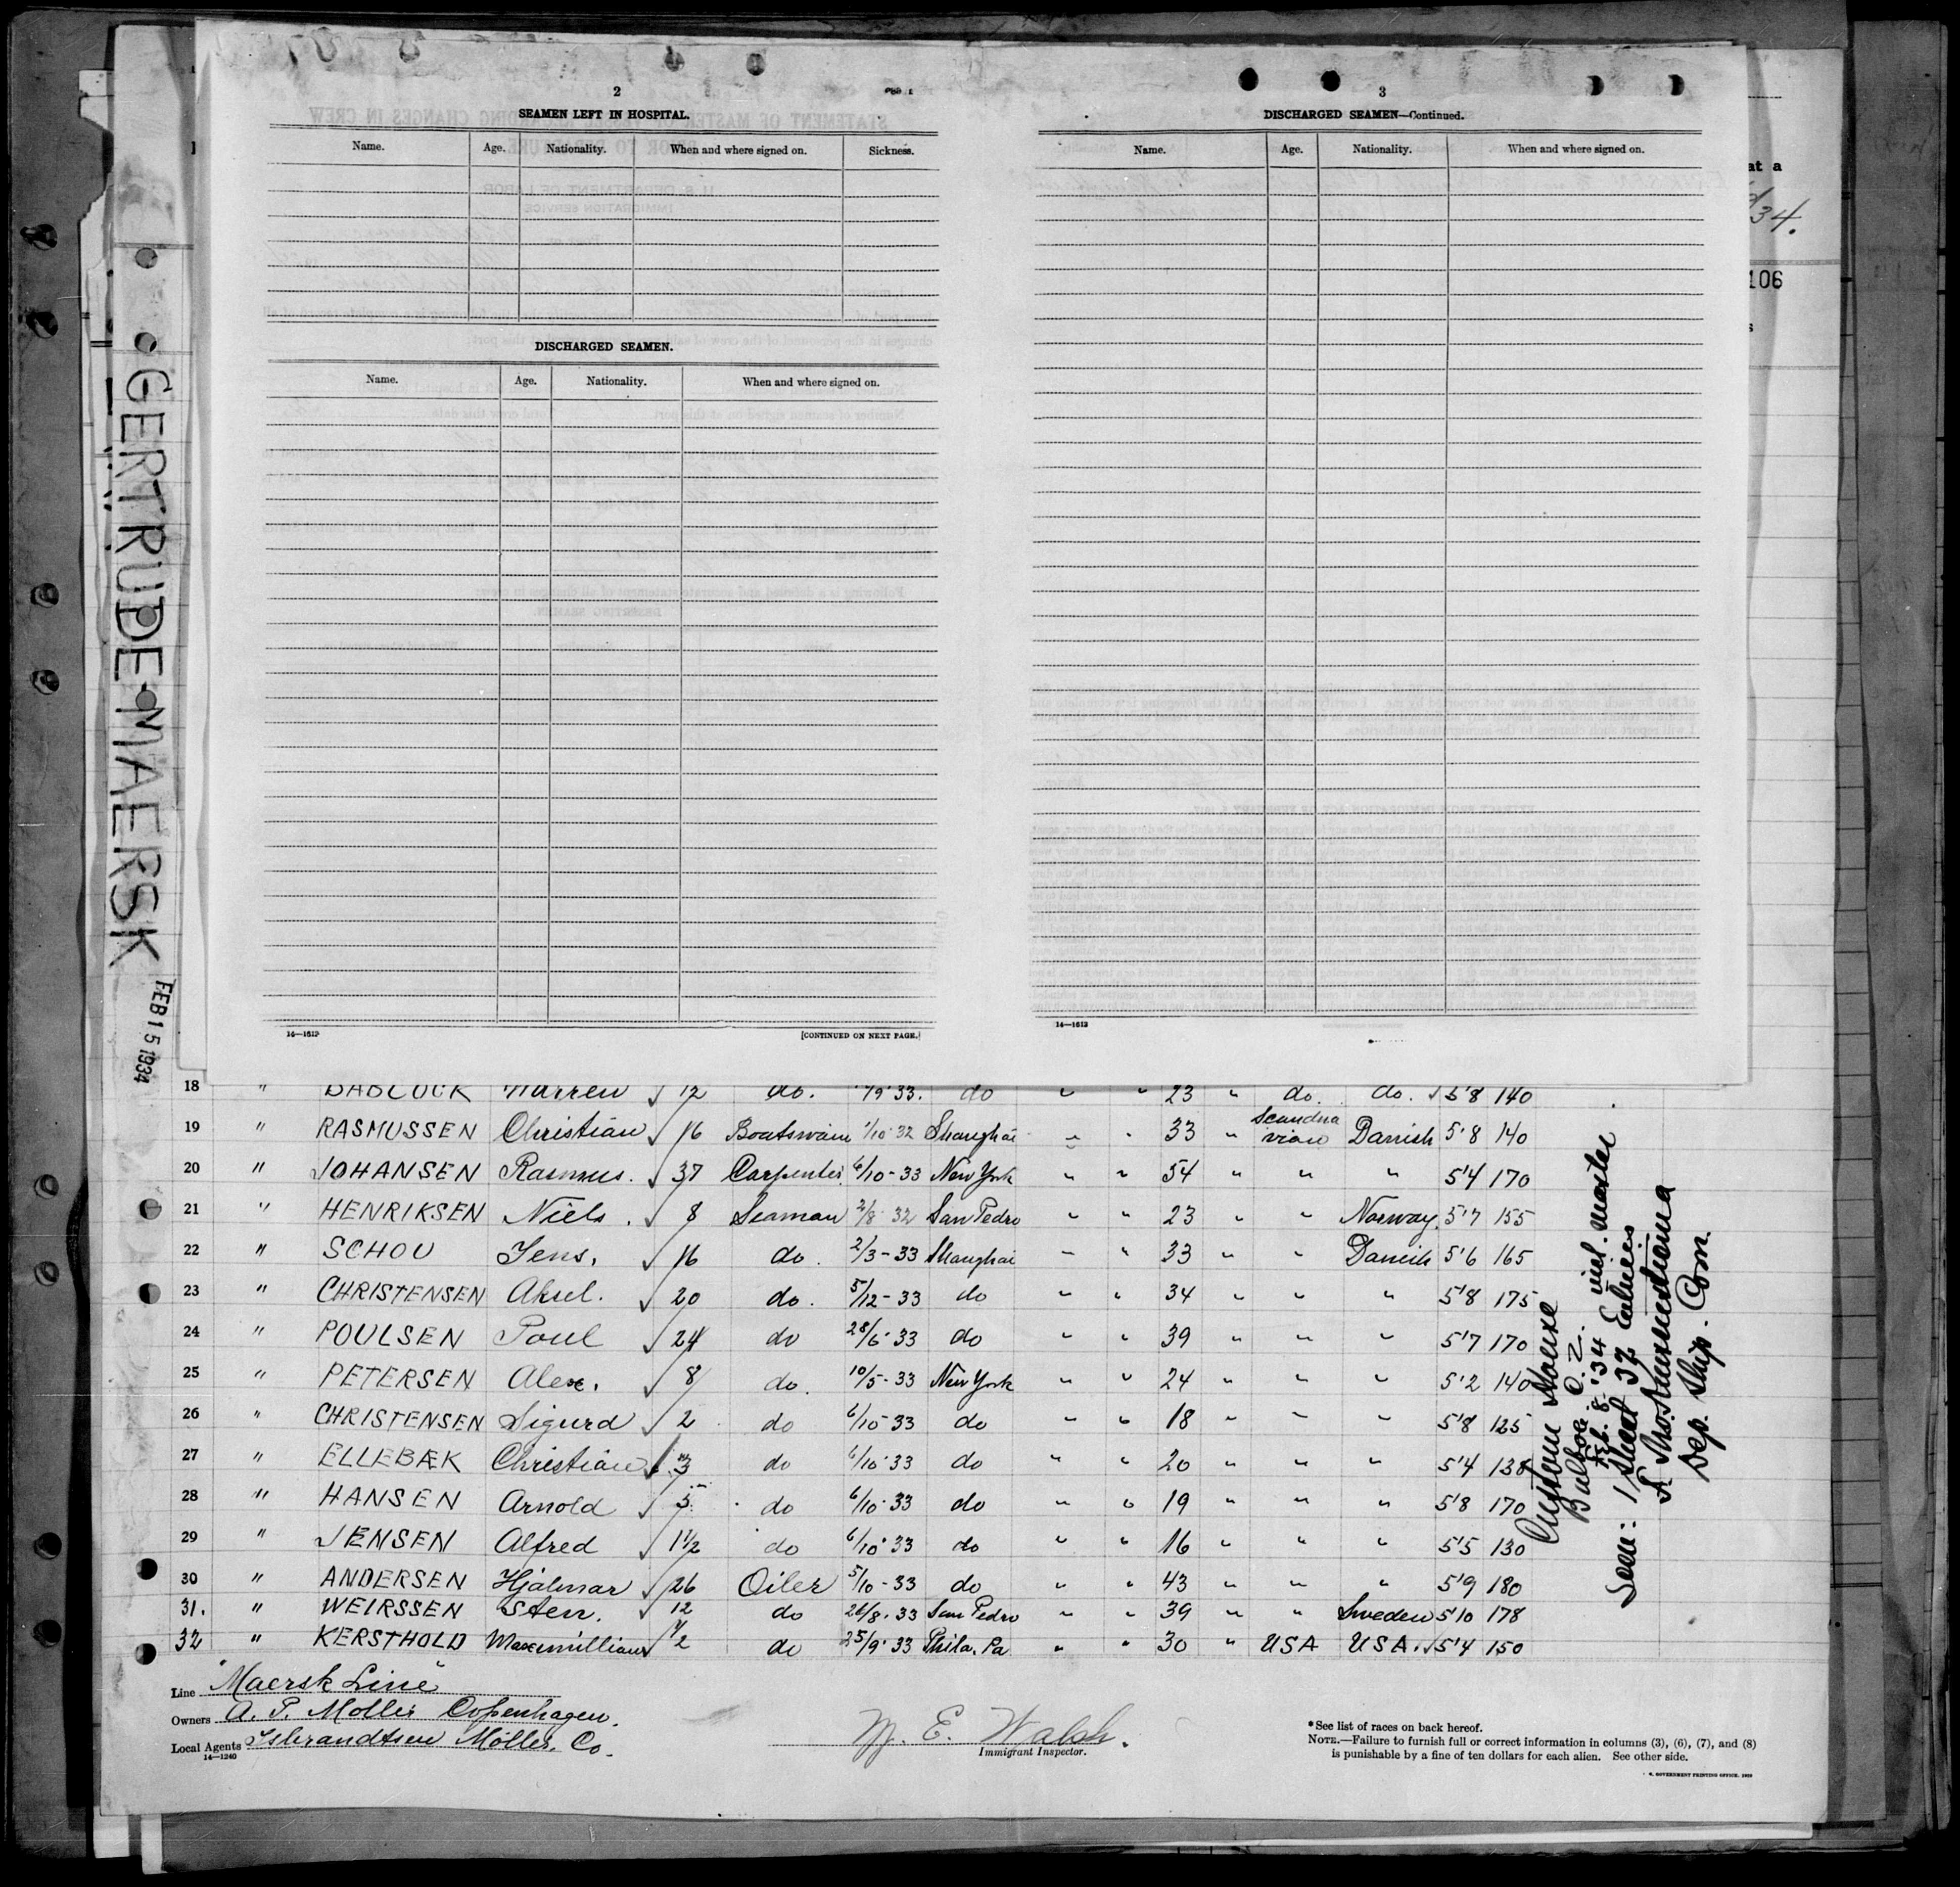 GERTRUDE MAERSK
FEB 15 1934
at a
34.
106
2
SEAMEN LEFT IN HOSPITAL.
Name. Age. Nationality. When and where signed on. Sickness.
DISCHARGED SEAMEN.
Name. Age. Nationality. When and where signed on.
14—1612 [CONTINUED ON NEXT PAGE.]
3
DISCHARGED SEAMEN—Continued.
Name. Age. Nationality. When and where signed on.
14—1612
18 " BABCOCK Warren √ 12 do. 33. do " " 23 " do. do. √ 5'8 140
19 " RASMUSSEN Christian √ 16 Boatswain 1/10-32 Shanghai " " 33 " Scandinavian Danish 5'8 140
20 " JOHANSEN Rasmus. √ 37 Carpenter 6/10-33 New York " " 54 " " " 5'4 170
21 " HENRIKSEN Niels. √ 8 Seaman 2/8 32 San Pedro " " 23 " " Norway. 5'7 155
22 " SCHOU Jens. √ 16 do. 2/3-33 Shanghai " " 33 " " Danish 5'6 165
23 " CHRISTENSEN Aksel. √ 20 do. 5/12-33 do " " 34 " " " 5'8 175
24 " POULSEN Poul √ 24 do 28/6-33 do " " 39 " " " 5'7 170
25 " PETERSEN Alex. √ 8 do. 10/5-33 New York " " 24 " " " 5'2 140
26 " CHRISTENSEN Sigurd √ 2 do 6/10-33 do " " 18 " " " 5'8 125
27 " ELLEBÆK Christian √ 3 do 6/10-33 do " " 20 " " " 5'4 138
28 " HANSEN Arnold √ 5 do 6/10-33 do " " 19 " " " 5'8 170
29 " JENSEN Alfred √ 1½ do 6/10-33 do " " 16 " " " 5'5 130
30 " ANDERSEN Hjalmar √ 26 Oiler 5/10-33 do " " 43 " " " 5'9 180
31. " WEIRSSEN Sten. √ 12 do 26/8-33 San Pedro " " 39 " " Sweden 5'10 178
32 " KERSTHOLD Maxmillian √ ½ do 25/9-33 Phila. Pa " " 30 " USA USA. √ 5'4 150
Custom House
Balboa. C. Z.
Feb. 8. '34 incl. master
Seen: 1 sheet 32 Entries
Dep. Ship. Com.
Line "Maersk Line"
Owners A. P. Moller Copenhagen.
Local Agents Isbrandtsen Moller. Co.
14—1240
M. E. Walsh.
Immigrant Inspector.
*See list of races on back hereof.
NOTE.—Failure to furnish full or correct information in columns (3), (6), (7), and (8)
is punishable by a fine of ten dollars for each alien. See other side.